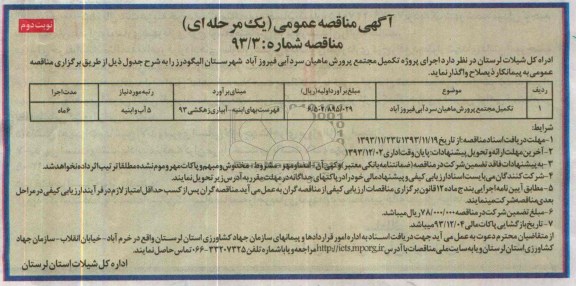 نوبت دوم
آگهی مناقصه عمومی (یک مرحله ای)
مناقصه شماره: ۹۳/۳
اداره کل شیلات لرستان در نظر دارد اجرای پروژه تکمیل مجتمع پرورش ماهیان سردآبی فیروز آباد شهرستان الیگودرز را به شرح جدول ذیل از طریق برگزاری مناقصه
عمومی به پیمانکار ذیصلاح واگذار نماید.
ردیف موضوع مبلغ برآورد اولیه (ریال) مبنای برآورد رتبه مورد نیاز مدت اجرا
۱ تکمیل مجتمع پرورش ماهیان سردآبی فیروز آباد ۶/۵۰۴/۸۹۵/۰۲۹ فهرست بهای ابنیه - آبیاری زهکشی ۹۳ ۵ آب و ابنیه ۶ ماه
شرایط:
۱- مهلت دریافت اسناد مناقصه: از تاریخ ۱۳۹۳/۱۱/۱۹ تا ۱۳۹۳/۱۱/۲۳
۲- آخرین مهلت ارائه و تحویل پیشنهادات: پایان وقت اداری ۱۳۹۳/۱۲/۰۲
۳- به پیشنهادات فاقد تضمین شرکت در مناقصه (ضمانتنامه بانکی معتبر) و فاقد مهر - مشروط - مخدوش و مبهم و پاکات مهر و موم نشده مطلقا ترتیب اثر داده نخواهد شد.
۴- شرکت کنندگان می بایست اسناد ارزیابی کیفی و پیشنهاد مالی خود را در پاکتهای جداگانه در مهلت مقرر به آدرس زیر تحویل نمایند.
۵- مطابق آیین نامه اجرایی بند ج ماده ۱۲ قانون برگزاری مناقصات ارزیابی کیفی از مناقصه گران به عمل می آید. مناقصه گران پس از کسب حداقل امتیاز لازم در فرآیند ارزیابی کیفی در مراحل
بعدی مناقصه شرکت مینمایند
۶- مبلغ تضمین شرکت در مناقصه ۷۸/۰۰۰/۰۰۰ ریال میباشد.
۷- تاریخ بازگشایی پاکات مالی ۹۳/۱۲/۰۴ میباشد.
از متقاضیان محترم دعوت به عمل می آید جهت دریافت اسناد به اداره امور قراردادها و پیمانهای سازمان جهاد کشاورزی استان لرستان واقع در خرم آباد - خیابان انقلاب - سازمان جهاد
کشاورزی استان لرستان و یا به سایت ملی مناقصات با آدرس http://iets.mporg.ir مراجعه و یا با شماره تلفن ۳۳۲۰۷۳۲۵-۰۶۶ تماس حاصل نمایند.
اداره کل شیلات استان لرستان